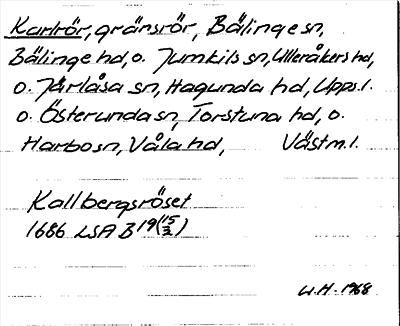 Karlrör, gränsrör, Bälinge sn,
Bälinge hd, o. Jumkils sn, Ulleråkers hd,
o. Järlåsa sn, Hagunda hd, Upps.l.
o. Österunda sn, Torstuna hd, o.
Harbo sn, Våla hd, Västm.l.
Kallbergsröset
1686 LSA B 19 (15/2)
U.H. 1968